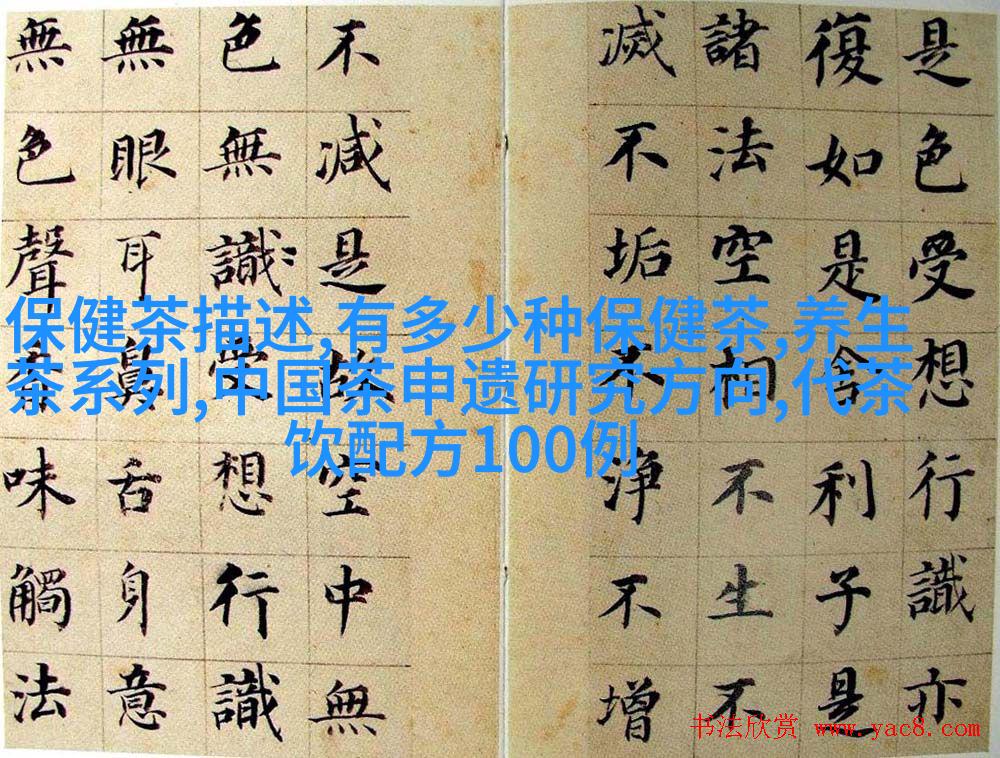 是色受想行識亦
復如是舍利子是
諸法空相不生不
滅不垢不淨不增
不減是故空中無
色無識受想行識
無眼耳鼻舌身意
無色聲香味觸法
保健茶描述,有多少种保健茶,养生
茶系列,中国茶申遗研究方向,代茶
饮配方100例
书法欣赏 www.yac8.com